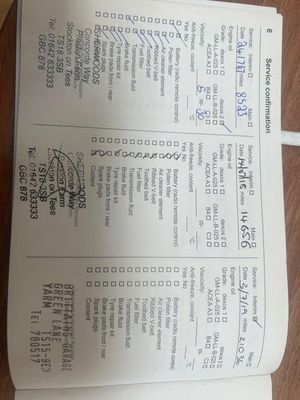 6 Service confirmation
Service: Interim Main
Date miles 8523
Engine oil
Grade: dexos 1 dexos 2
GM-LL-A-025 GM-LL-B-025
ACEA A3 B4 C3
Viscosity W-
Anti-freeze, coolant °C
Yes No
Battery (radio remote control)
Pollen filter
Air cleaner element
Ribbed V-belt
Toothed belt
Fuel filter
Transmission fluid
Brake fluid
Tyre repair kit
Brake pads front / rear
Spark plugs
Coolant
Concorde Way
Preston Farm
Stockton on Tees
TS18 3SB
Tel: 01642 633333
GBC 878
Service: Interim Main
Date miles 14656
Engine oil
Grade: dexos 1 dexos 2
GM-LL-A-025 GM-LL-B-025
ACEA A3 B4 C3
Viscosity W-
Anti-freeze, coolant °C
Yes No
Battery (radio remote control)
Pollen filter
Air cleaner element
Ribbed V-belt
Toothed belt
Fuel filter
Transmission fluid
Brake fluid
Tyre repair kit
Brake pads front / rear
Spark plugs
Coolant
Concorde Way
Preston Farm
Stockton on Tees
TS18 3SB
Tel: 01642 633333
GBC 878
Service: Interim Main
Date 3/7/19 miles 21036
Engine oil
Grade: dexos 1 dexos 2
GM-LL-A-025 GM-LL-B-025
ACEA A3 B4 C3
Viscosity W-
Anti-freeze, coolant °C
Yes No
Battery (radio remote control)
Pollen filter
Air cleaner element
Ribbed V-belt
Toothed belt
Fuel filter
Transmission fluid
Brake fluid
Tyre repair kit
Brake pads front / rear
Spark plugs
Coolant
GARAGE
GREEN LANE
YARM TS15
TEL. 780517